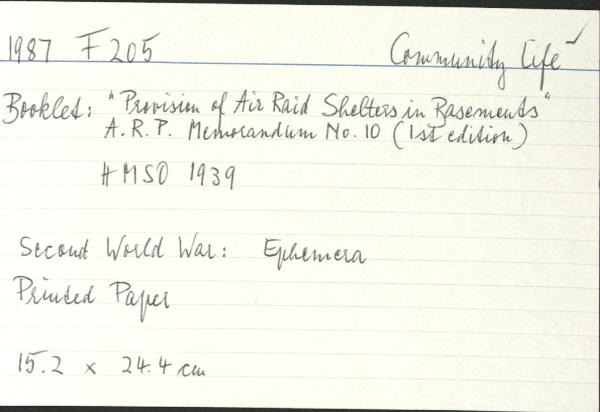 1987 F205 Community Life ✓
Booklet: "Provision of Air Raid Shelters in Basements"
A.R.P. Memorandum No. 10 (1st edition)
HMSO 1939
Second World War: Ephemera
Printed Paper
15.2 x 24.4 cm